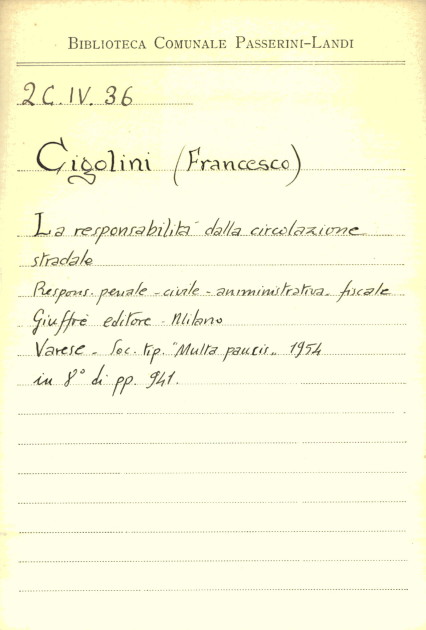 BIBLIOTECA COMUNALE PASSERINI-LANDI
2C. IV. 36
Cigolini (Francesco)
La responsabilità dalla circolazione
stradale
Respons. penale - civile - amministrativa - fiscale
Giuffrè editore - Milano
Varese - Soc. tip. "Multa paucis" 1954
in 8° di pp. 941.